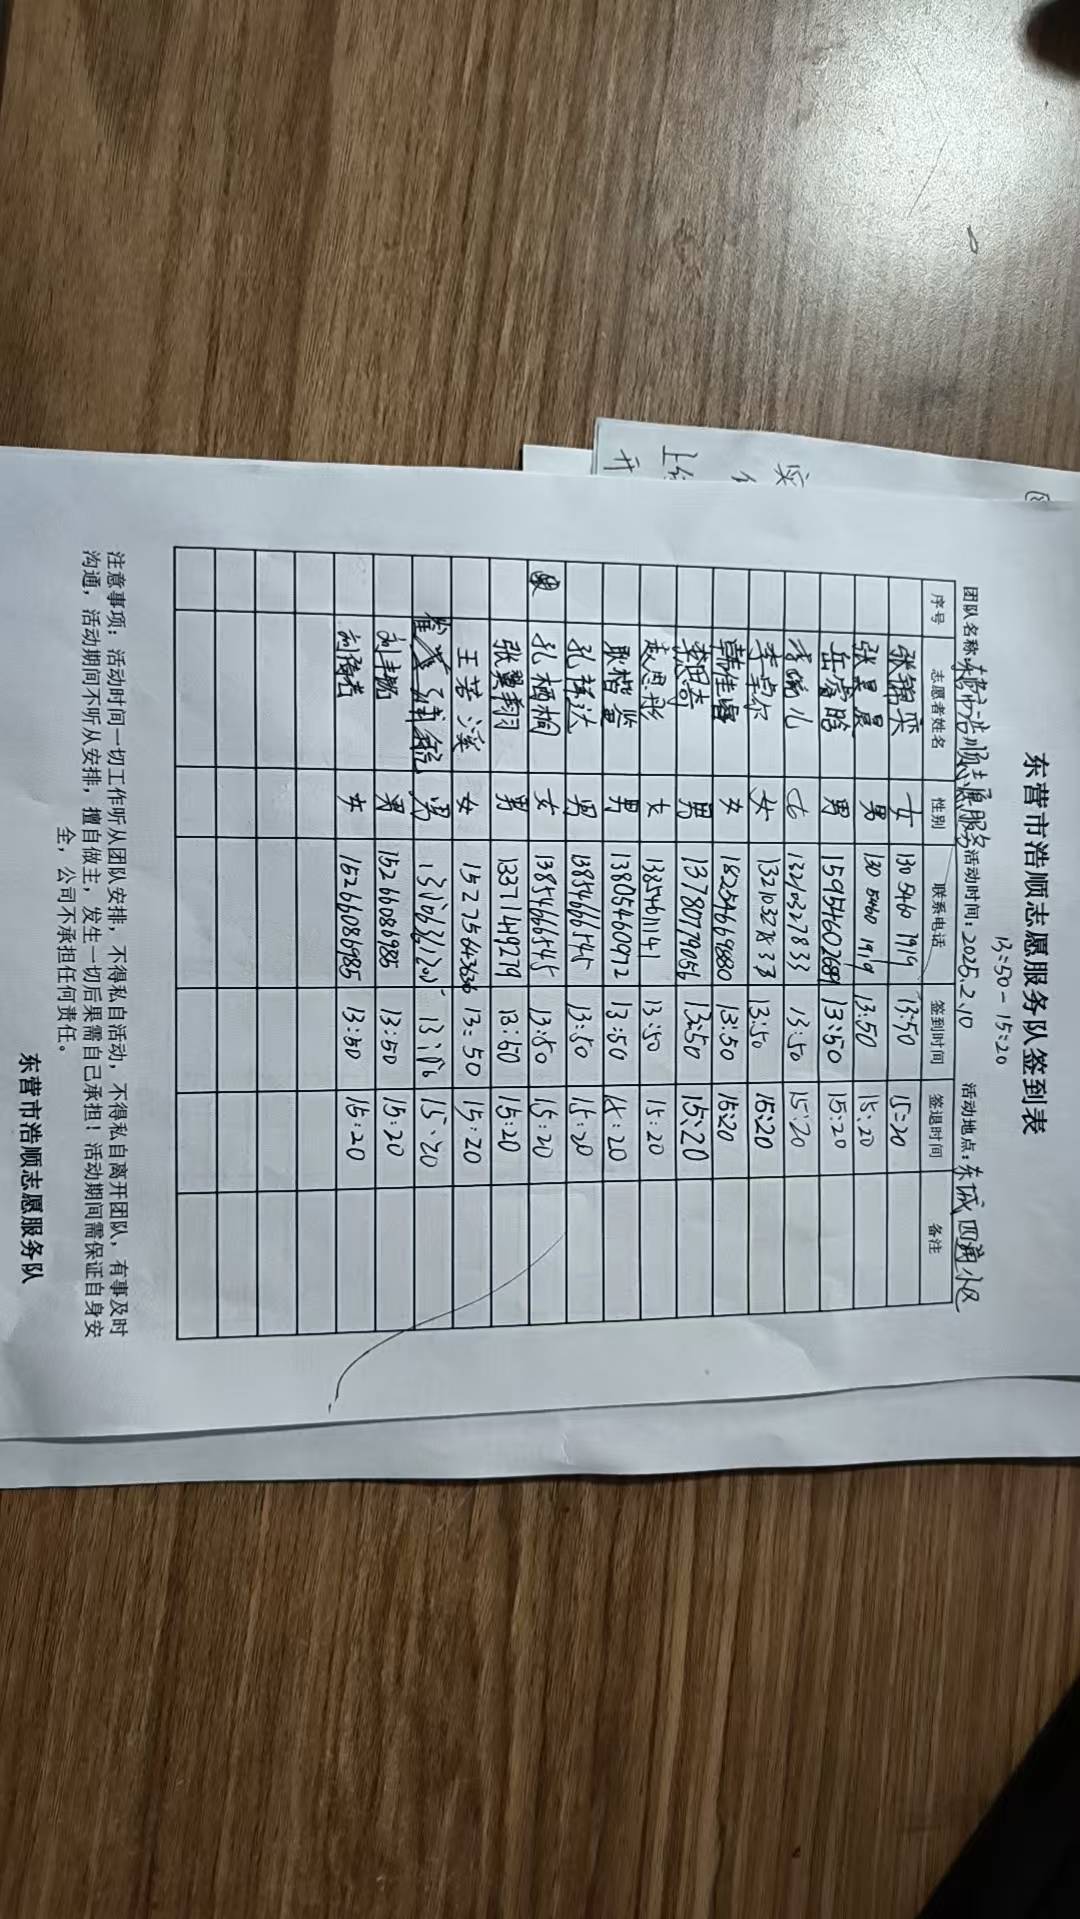 东营市浩顺志愿服务队签到表
13:50-15:20
团队名称:东营市浩顺志愿服务 活动时间:2025.2.10 活动地点:东城四新小区
序号 志愿者姓名 性别 联系电话 签到时间 签退时间 备注
张锦奕 女 130 5460 1919 13:50 15:20
张昊晨 男 130 5460 1919 13:50 15:20
岳睿晗 男 15954602689 13:50 15:20
李晓儿 女 13210327833 13:50 15:20
李卓尔 女 13210327833 13:50 15:20
韩佳睿 女 18254669880 13:50 15:20
李昭奇 男 13780779056 13:50 15:20
赵思彤 女 13:50 15:20
耿楷鉴 男 13805460972 13:50 15:20
孔 男 13854666545 13:50 15:20
孔栖桐 女 13854666545 13:50 15:20
张翼翔 男 13371449279 13:50 15:20
王若溪 女 15275643636 13:50 15:20
男 15:20
刘 男 15266086985 13:50 15:20
刘 女 15266086985 13:50 15:20
注意事项:活动时间一切工作听从团队安排,不得私自活动,不得私自离开团队,有事及时
沟通,活动期间不听从安排,擅自做主,发生一切后果需自己承担!活动期间需保证自身安
全,公司不承担任何责任。
东营市浩顺志愿服务队